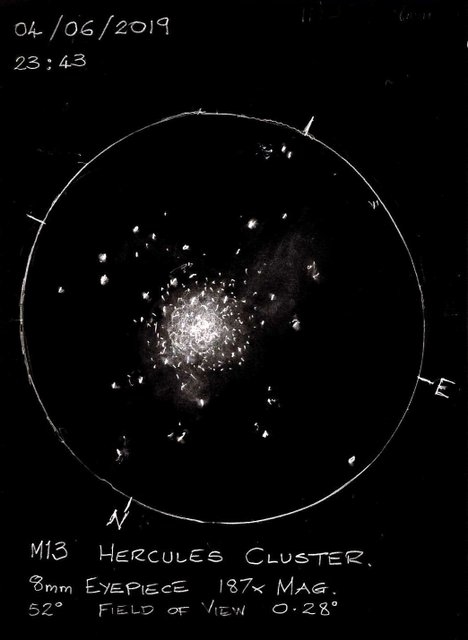 04/06/2019
23:43
E
N
M13 HERCULES CLUSTER.
8mm EYEPIECE 187x MAG.
52° FIELD OF VIEW 0.28°